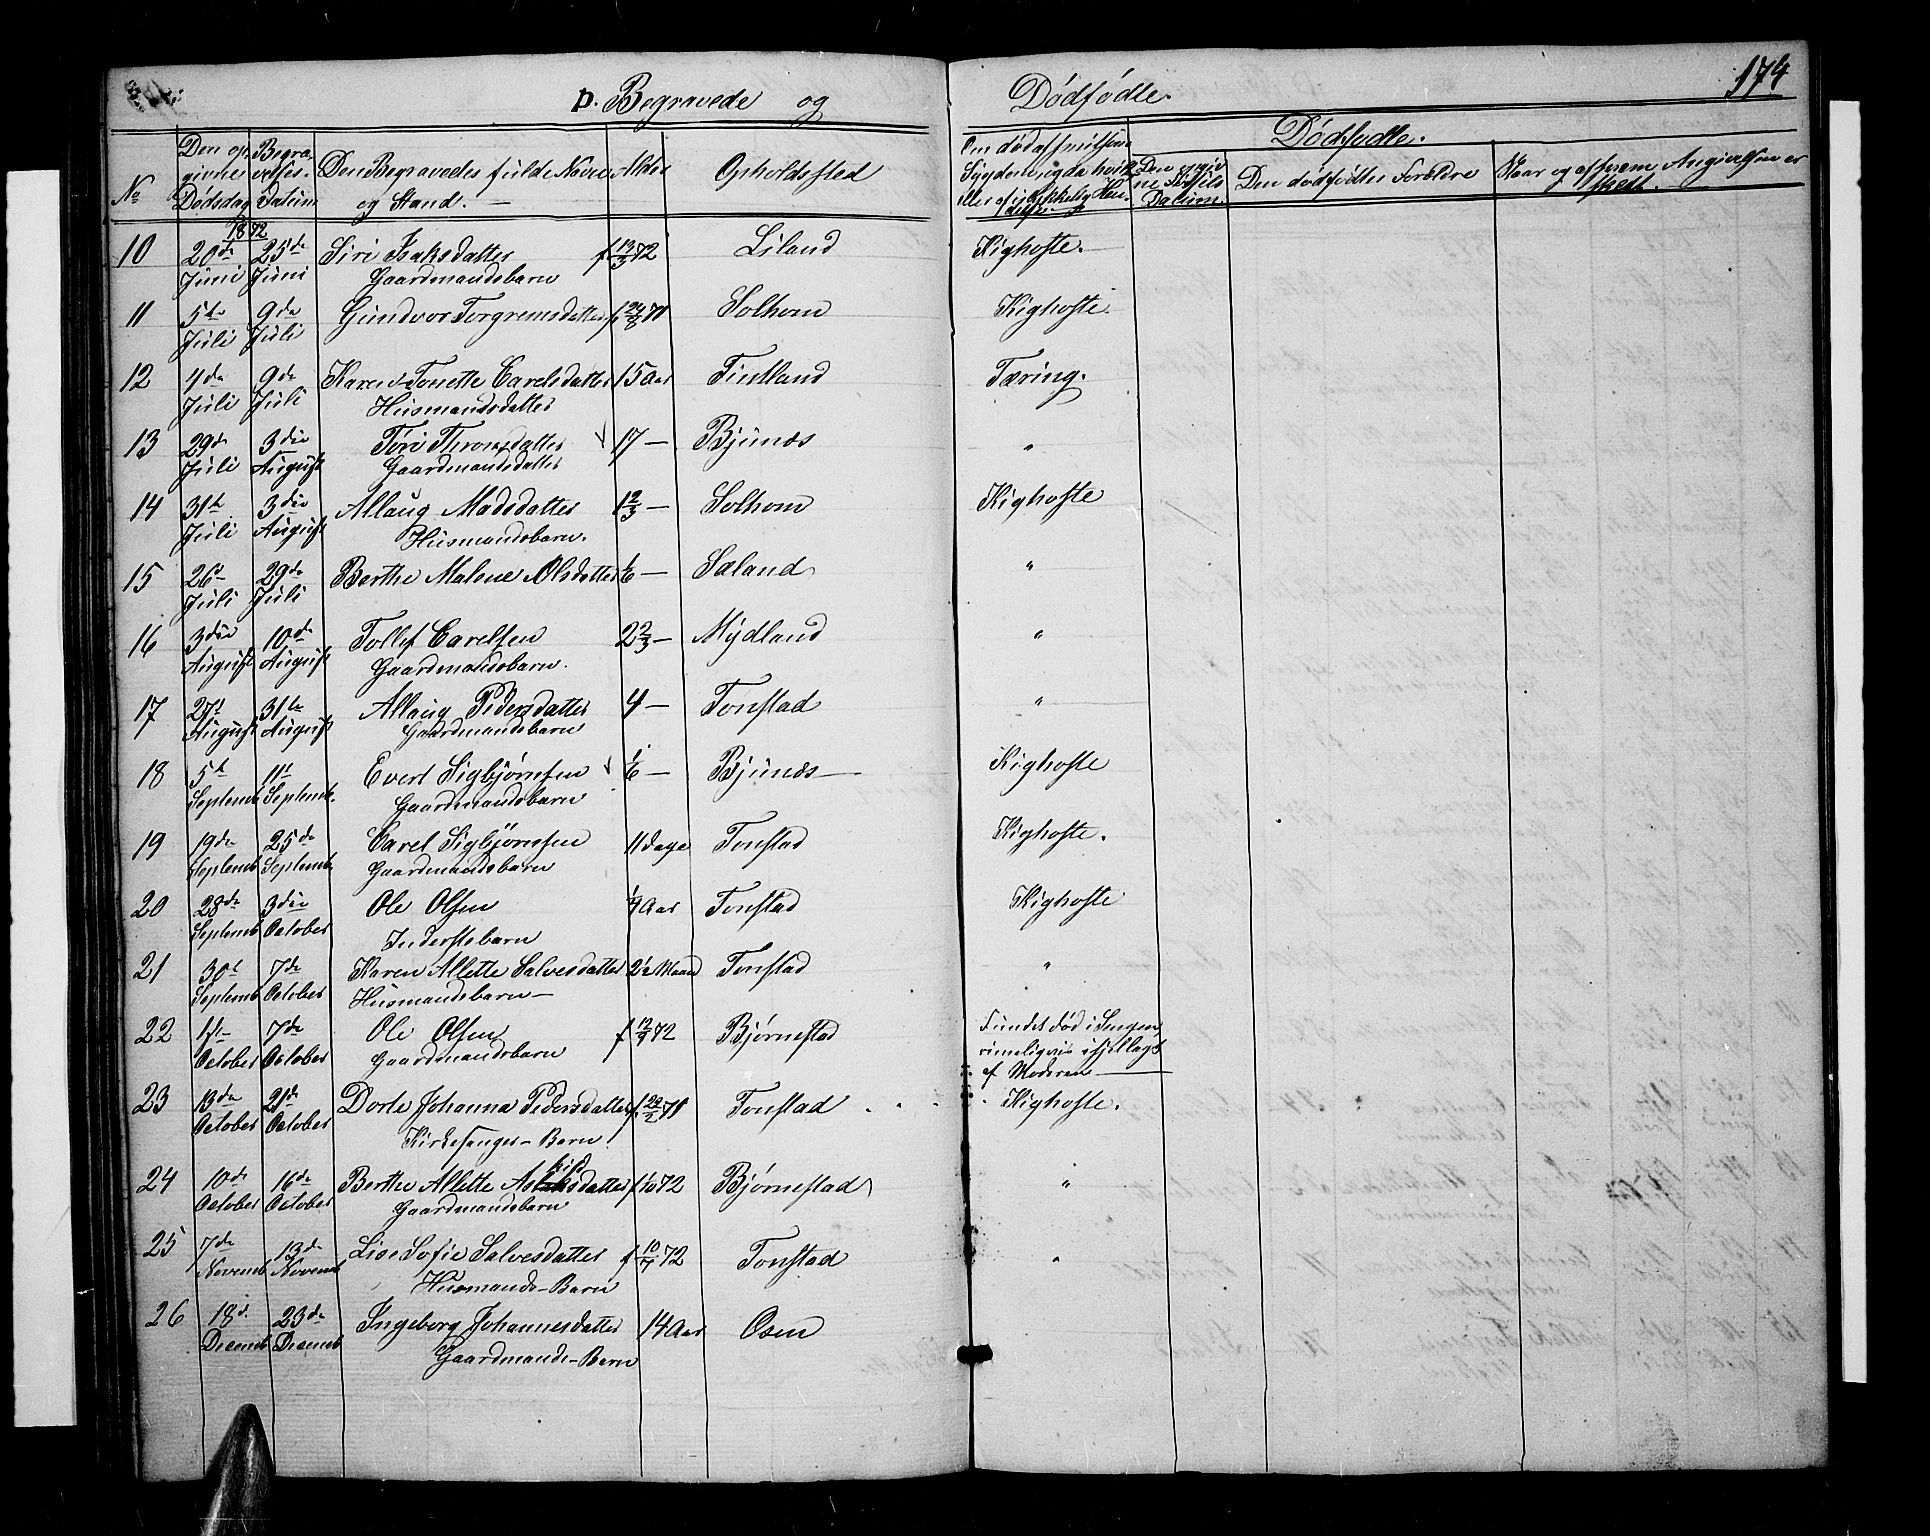 174
D. Begravede og Dødfødte.
No
Den op-
givne
Dødsdag
Begra-
velses-
Datum
Den Begravedes fulde Navn
og Stand. —
Alder
Opholdssted
Om død af smitsom
Sygdom
eller
Dødfødte.
Datum.
Den dødfødtes Forældre
Naar og af hvem Angivelsen er
skeet.
1872
10 20de 25de Siri Isaksdatter f 13/3 72 Liland Kighoste.
Juni Juni Gaardmandsbarn
11 5te 9de Gundvor Torgrimsdatter f 24/8 71 Solhom Kighoste.
Juli Juli
12 4de 9de Karen Tonette Carelsdatter 15 Aar Tintland Tæring.
Juli Juli Husmandsdatter
13 29de 3die Tøri Thronsdatter 17 — Bjunes "
Juli August Gaardmandsdatter
14 31te 3die Allaug Madsdatter 1 2/3 — Solhom Kighoste
Juli August Husmandsbarn.
15 26d 29de Berthe Malene Olsdatter 1/6 — Sæland "
Juli Juli
16 3die 10de Tollef Carelsen 2 2/3 — Mydland "
August August Gaardmandsbarn.
17 27d 31te Allaug Pedersdatter 4 — Tonstad "
August August Gaardmandsbarn
18 5t 11t Evert Sigbjørnsen 1/6 — Bjunes — Kighoste
Septemb Septemb. Gaardmandsbarn
19 19de 25de Carel Sigbjörnsen 11 dage Tonstad Kighoste.
Septemb Septemb Gaardmandsbarn
20 28de 3die Ole Olsen 1/4 Aar Tonstad Kighoste
Septemb October Inderstebarn
21 30t 7de Karen Allette Salvesdatter 2½ Maan Tonstad "
Septemb October Husmandsbarn —
22 1ste 7de Ole Olsen f 12/9 72 Bjørnestad Fundet død i Sengen
October October Gaardmandsbarn rimeligvis ihjellagt
af Moderen —
23 13de 21de Dorte Johanna Pedersdatter f. 22/2 71 Tonstad Kighoste.
October October Kirkesanger-Barn
24 10de 16de Berthe Allette Askildsdatter f 1/10 72 Bjørnestad "
October October Gaardmandsbarn
25 7de 13de Lise Sofie Salvesdatter f 10/7 72 Tonstad "
Novemb Novemb Husmands-Barn
26 18d. 23de Ingeborg Johannesdatter 14 Aar Osen
Decemb Decemb Gaardmands-Barn